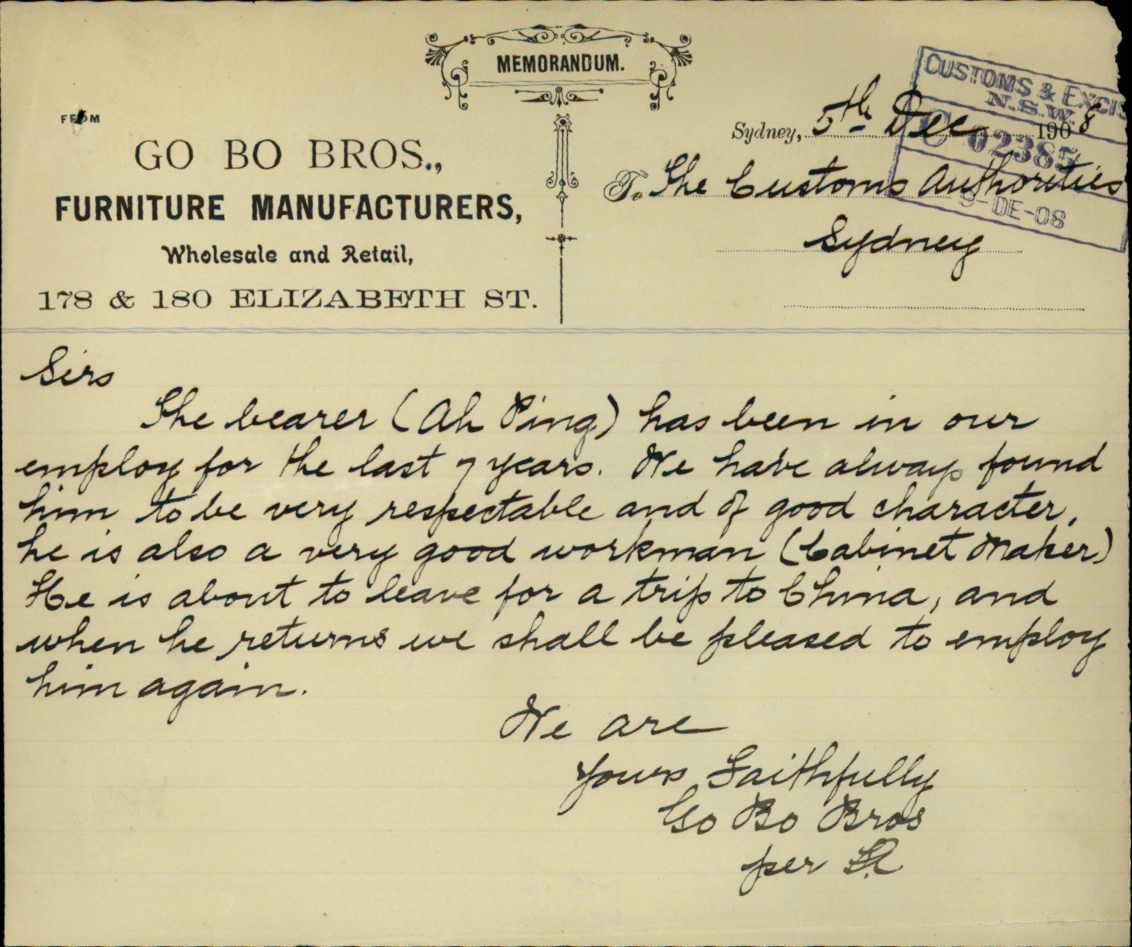 MEMORANDUM.
FROM
GO BO BROS.,
FURNITURE MANUFACTURERS,
Wholesale and Retail,
178 & 180 ELIZABETH ST.
CUSTOMS & EXCIS
N.S.W.
C 02385
9-DE-08
Sydney, 5th Dec 1908
To The Customs Authorities
Sydney
Sirs
The bearer (Ah Ping) has been in our
employ for the last 7 years. We have always found
him to be very respectable and of good character,
he is also a very good workman (Cabinet Maker)
He is about to leave for a trip to China, and
when he returns we shall be pleased to employ
him again.
We are
Yours Faithfully
Go Bo Bros
per